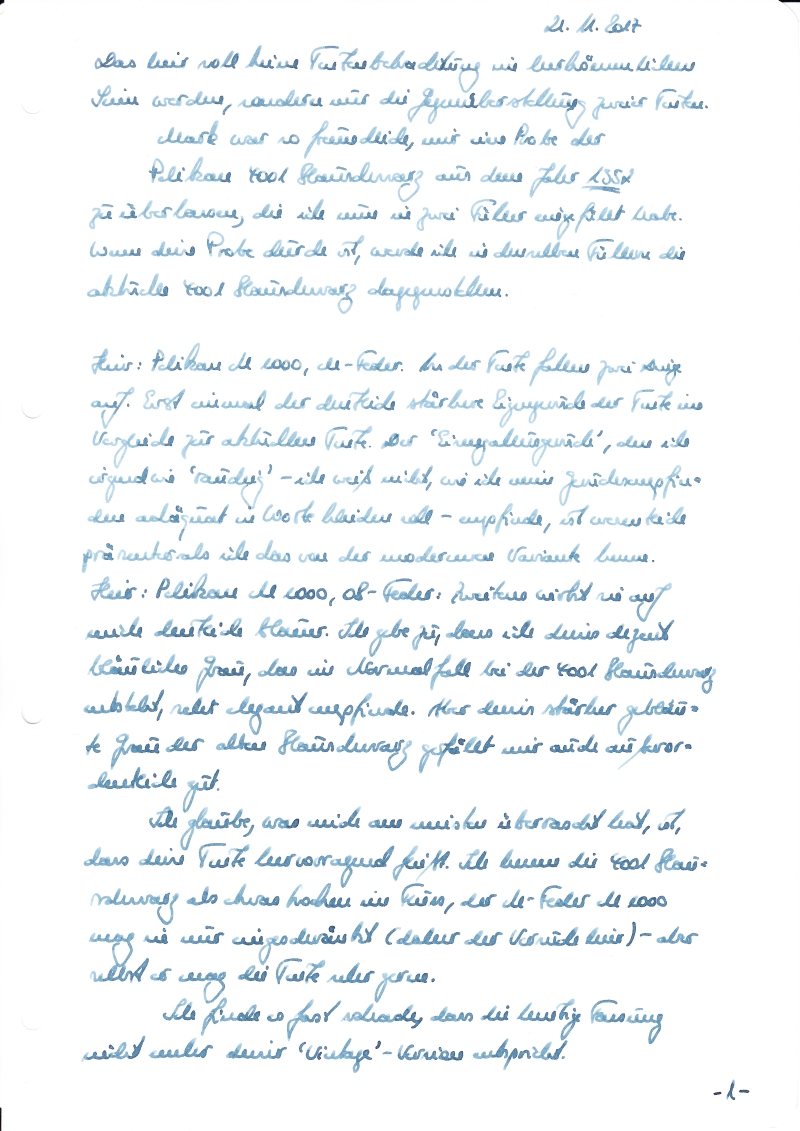 21. 11. 2017
Das hier soll keine Tintenbetrachtung im herkömmlichen
Sinn werden, sondern nur die Gegenüberstellung zweier Tinten.
Mark war so freundlich, mir eine Probe der
Pelikan 4001 Blauschwarz aus dem Jahr 1992
zu überlassen, die ich nun in zwei Füller eingefüllt habe.
Wenn diese Probe durch ist, werde ich in denselben Füllern die
aktuelle 4001 Blauschwarz dagegenstellen.
Hier: Pelikan M 1000, M-Feder. An der Tinte fallen zwei Dinge
auf. Erst einmal der deutlich stärkere Eigengeruch der Tinte im
Vergleich zur aktuellen Tinte. Der 'Eisengallusgeruch', den ich
irgendwie 'rauchig' - ich weiß nicht, wie ich mein Geruchsempfin-
den adäquat in Worte kleiden soll - empfinde, ist wesentlich
präsenter als ich das von der moderneren Variante kenne.
Hier: Pelikan M 1000, OB-Feder: Zweitens wirkt sie auf
mich deutlich blauer. Ich gebe zu, dass ich dieses dezent
bläuliche Grau, das im Normalfall bei der 4001 Blauschwarz
entsteht, sehr elegant empfinde. Aber dieses stärker gebläu-
te Grau der alten Blauschwarz gefällt mir auch außeror-
dentlich gut.
Ich glaube, was mich am meisten überrascht hat, ist,
dass diese Tinte hervorragend fließt. Ich kenne die 4001 Blau-
schwarz als etwas trocken im Fluss, der M-Feder M 1000
mag sie nur eingeschränkt (daher der Versuch hier) - aber
selbst er mag die Tinte sehr gerne.
Ich finde es fast schade, dass die heutige Fassung
nicht mehr dieser 'Vintage'-Version entspricht.
-1-